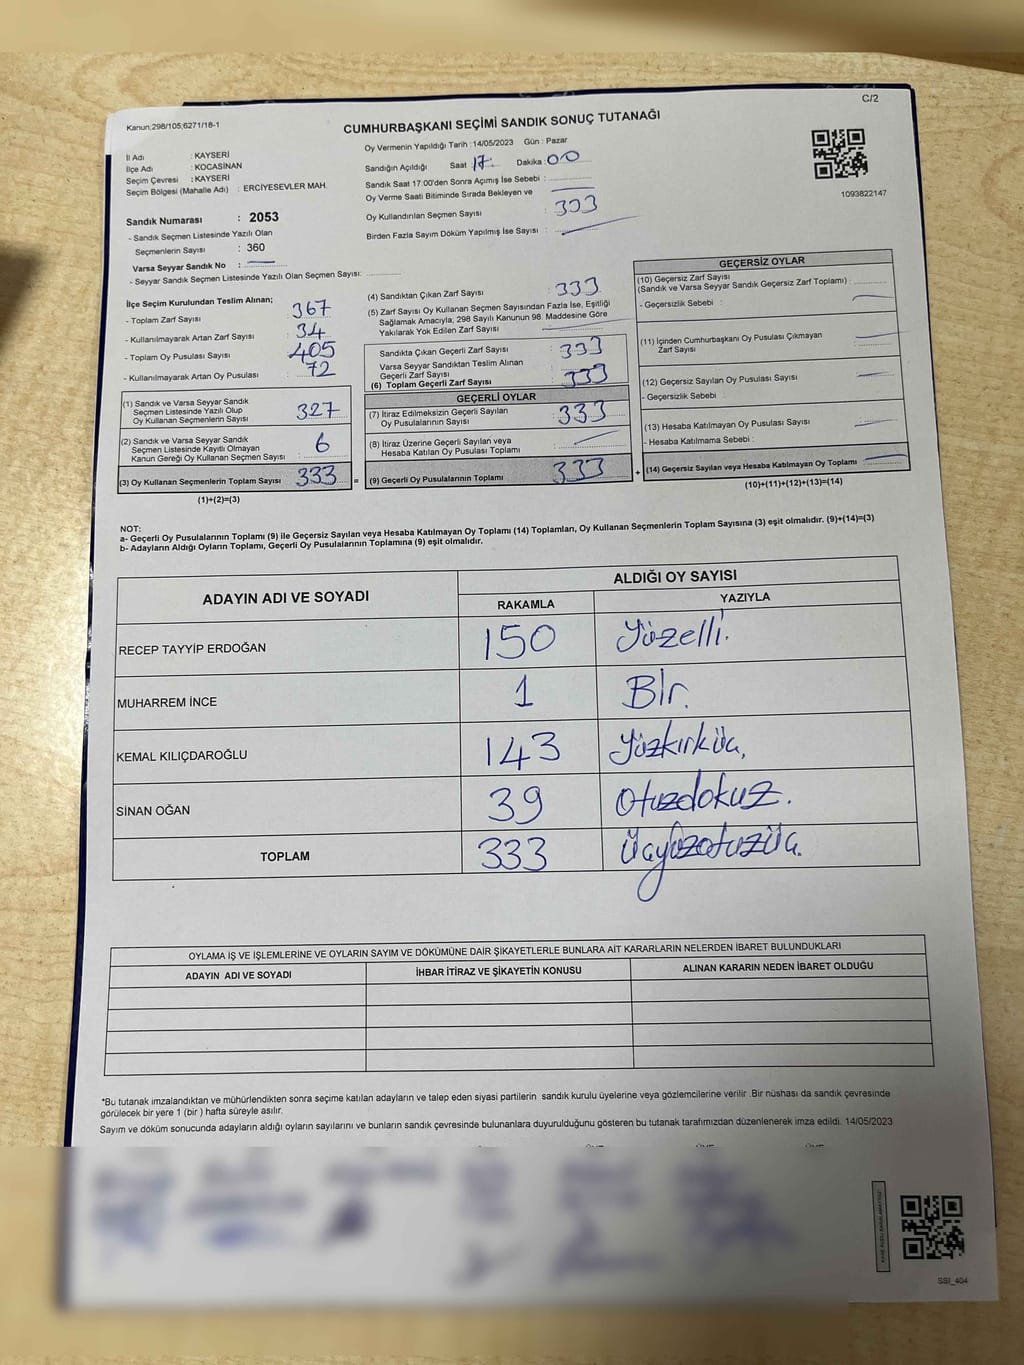 C/2
Kanun:298/105;6271/18-1
CUMHURBAŞKANI SEÇİMİ SANDIK SONUÇ TUTANAĞI
İl Adı : KAYSERİ
İlçe Adı : KOCASİNAN
Seçim Çevresi : KAYSERİ
Seçim Bölgesi (Mahalle Adı) : ERCİYESEVLER MAH.
Sandık Numarası : 2053
- Sandık Seçmen Listesinde Yazılı Olan
Seçmenlerin Sayısı : 360
Varsa Seyyar Sandık No :
- Seyyar Sandık Seçmen Listesinde Yazılı Olan Seçmen Sayısı:
Oy Vermenin Yapıldığı Tarih : 14/05/2023 Gün : Pazar
Sandığın Açıldığı Saat 17: Dakika : 00
Sandık Saat 17:00'den Sonra Açımış İse Sebebi :
Oy Verme Saati Bitiminde Sırada Bekleyen ve
Oy Kullandırılan Seçmen Sayısı : 333
Birden Fazla Sayım Döküm Yapılmış İse Sayısı :
1093822147
İlçe Seçim Kurulundan Teslim Alınan;
- Toplam Zarf Sayısı : 367
- Kullanılmayarak Artan Zarf Sayısı : 34
- Toplam Oy Pusulası Sayısı : 405
- Kullanılmayarak Artan Oy Pusulası : 72
(1) Sandık ve Varsa Seyyar Sandık
Seçmen Listesinde Yazılı Olup
Oy Kullanan Seçmenlerin Sayısı : 327
(2) Sandık ve Varsa Seyyar Sandık
Seçmen Listesinde Kayıtlı Olmayan
Kanun Gereği Oy Kullanan Seçmen Sayısı : 6
(3) Oy Kullanan Seçmenlerin Toplam Sayısı : 333 =
(1)+(2)=(3)
(4) Sandıktan Çıkan Zarf Sayısı : 333
(5) Zarf Sayısı Oy Kullanan Seçmen Sayısından Fazla İse, Eşitliği
Sağlamak Amacıyla; 298 Sayılı Kanunun 98. Maddesine Göre
Yakılarak Yok Edilen Zarf Sayısı :
Sandıkta Çıkan Geçerli Zarf Sayısı : 333
Varsa Seyyar Sandıktan Teslim Alınan
Geçerli Zarf Sayısı
(6) Toplam Geçerli Zarf Sayısı : 333
GEÇERLİ OYLAR
(7) İtiraz Edilmeksizin Geçerli Sayılan
Oy Pusulalarının Sayısı : 333
(8) İtiraz Üzerine Geçerli Sayılan veya
Hesaba Katılan Oy Pusulası Toplamı :
(9) Geçerli Oy Pusulalarının Toplamı : 333 +
GEÇERSİZ OYLAR
(10) Geçersiz Zarf Sayısı
(Sandık ve Varsa Seyyar Sandık Geçersiz Zarf Toplamı) :
- Geçersizlik Sebebi :
(11) İçinden Cumhurbaşkanı Oy Pusulası Çıkmayan
Zarf Sayısı :
(12) Geçersiz Sayılan Oy Pusulası Sayısı :
- Geçersizlik Sebebi :
(13) Hesaba Katılmayan Oy Pusulası Sayısı :
- Hesaba Katılmama Sebebi :
(14) Geçersiz Sayılan veya Hesaba Katılmayan Oy Toplamı :
(10)+(11)+(12)+(13)=(14)
NOT:
a- Geçerli Oy Pusulalarının Toplamı (9) ile Geçersiz Sayılan veya Hesaba Katılmayan Oy Toplamı (14) Toplamları, Oy Kullanan Seçmenlerin Toplam Sayısına (3) eşit olmalıdır. (9)+(14)=(3)
b- Adayların Aldığı Oyların Toplamı, Geçerli Oy Pusulalarının Toplamına (9) eşit olmalıdır.
ADAYIN ADI VE SOYADI
ALDIĞI OY SAYISI
RAKAMLA YAZIYLA
RECEP TAYYİP ERDOĞAN 150 Yüzelli.
MUHARREM İNCE 1 Bir.
KEMAL KILIÇDAROĞLU 143 Yüzkırküç.
SİNAN OĞAN 39 Otuzdokuz.
TOPLAM 333 Üçyüzotuzüç.
OYLAMA İŞ VE İŞLEMLERİNE VE OYLARIN SAYIM VE DÖKÜMÜNE DAİR ŞİKAYETLERLE BUNLARA AİT KARARLARIN NELERDEN İBARET BULUNDUKLARI
ADAYIN ADI VE SOYADI İHBAR İTİRAZ VE ŞİKAYETİN KONUSU ALINAN KARARIN NEDEN İBARET OLDUĞU
*Bu tutanak imzalandıktan ve mühürlendikten sonra seçime katılan adayların ve talep eden siyasi partilerin sandık kurulu üyelerine veya gözlemcilerine verilir .Bir nüshası da sandık çevresinde
görülecek bir yere 1 (bir ) hafta süreyle asılır.
Sayım ve döküm sonucunda adayların aldığı oyların sayılarını ve bunların sandık çevresinde bulunanlara duyurulduğunu gösteren bu tutanak tarafımızdan düzenlenerek imza edildi. 14/05/2023
SSİ_404